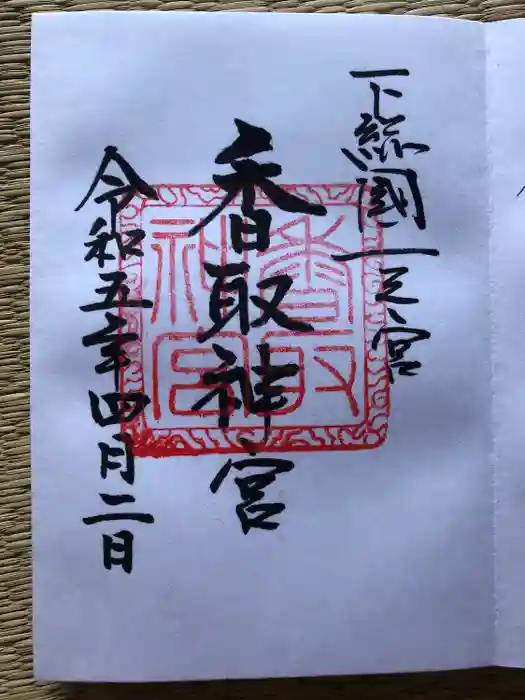 下総國一之宮
香取神宮
令和五年四月二日
香取神宮